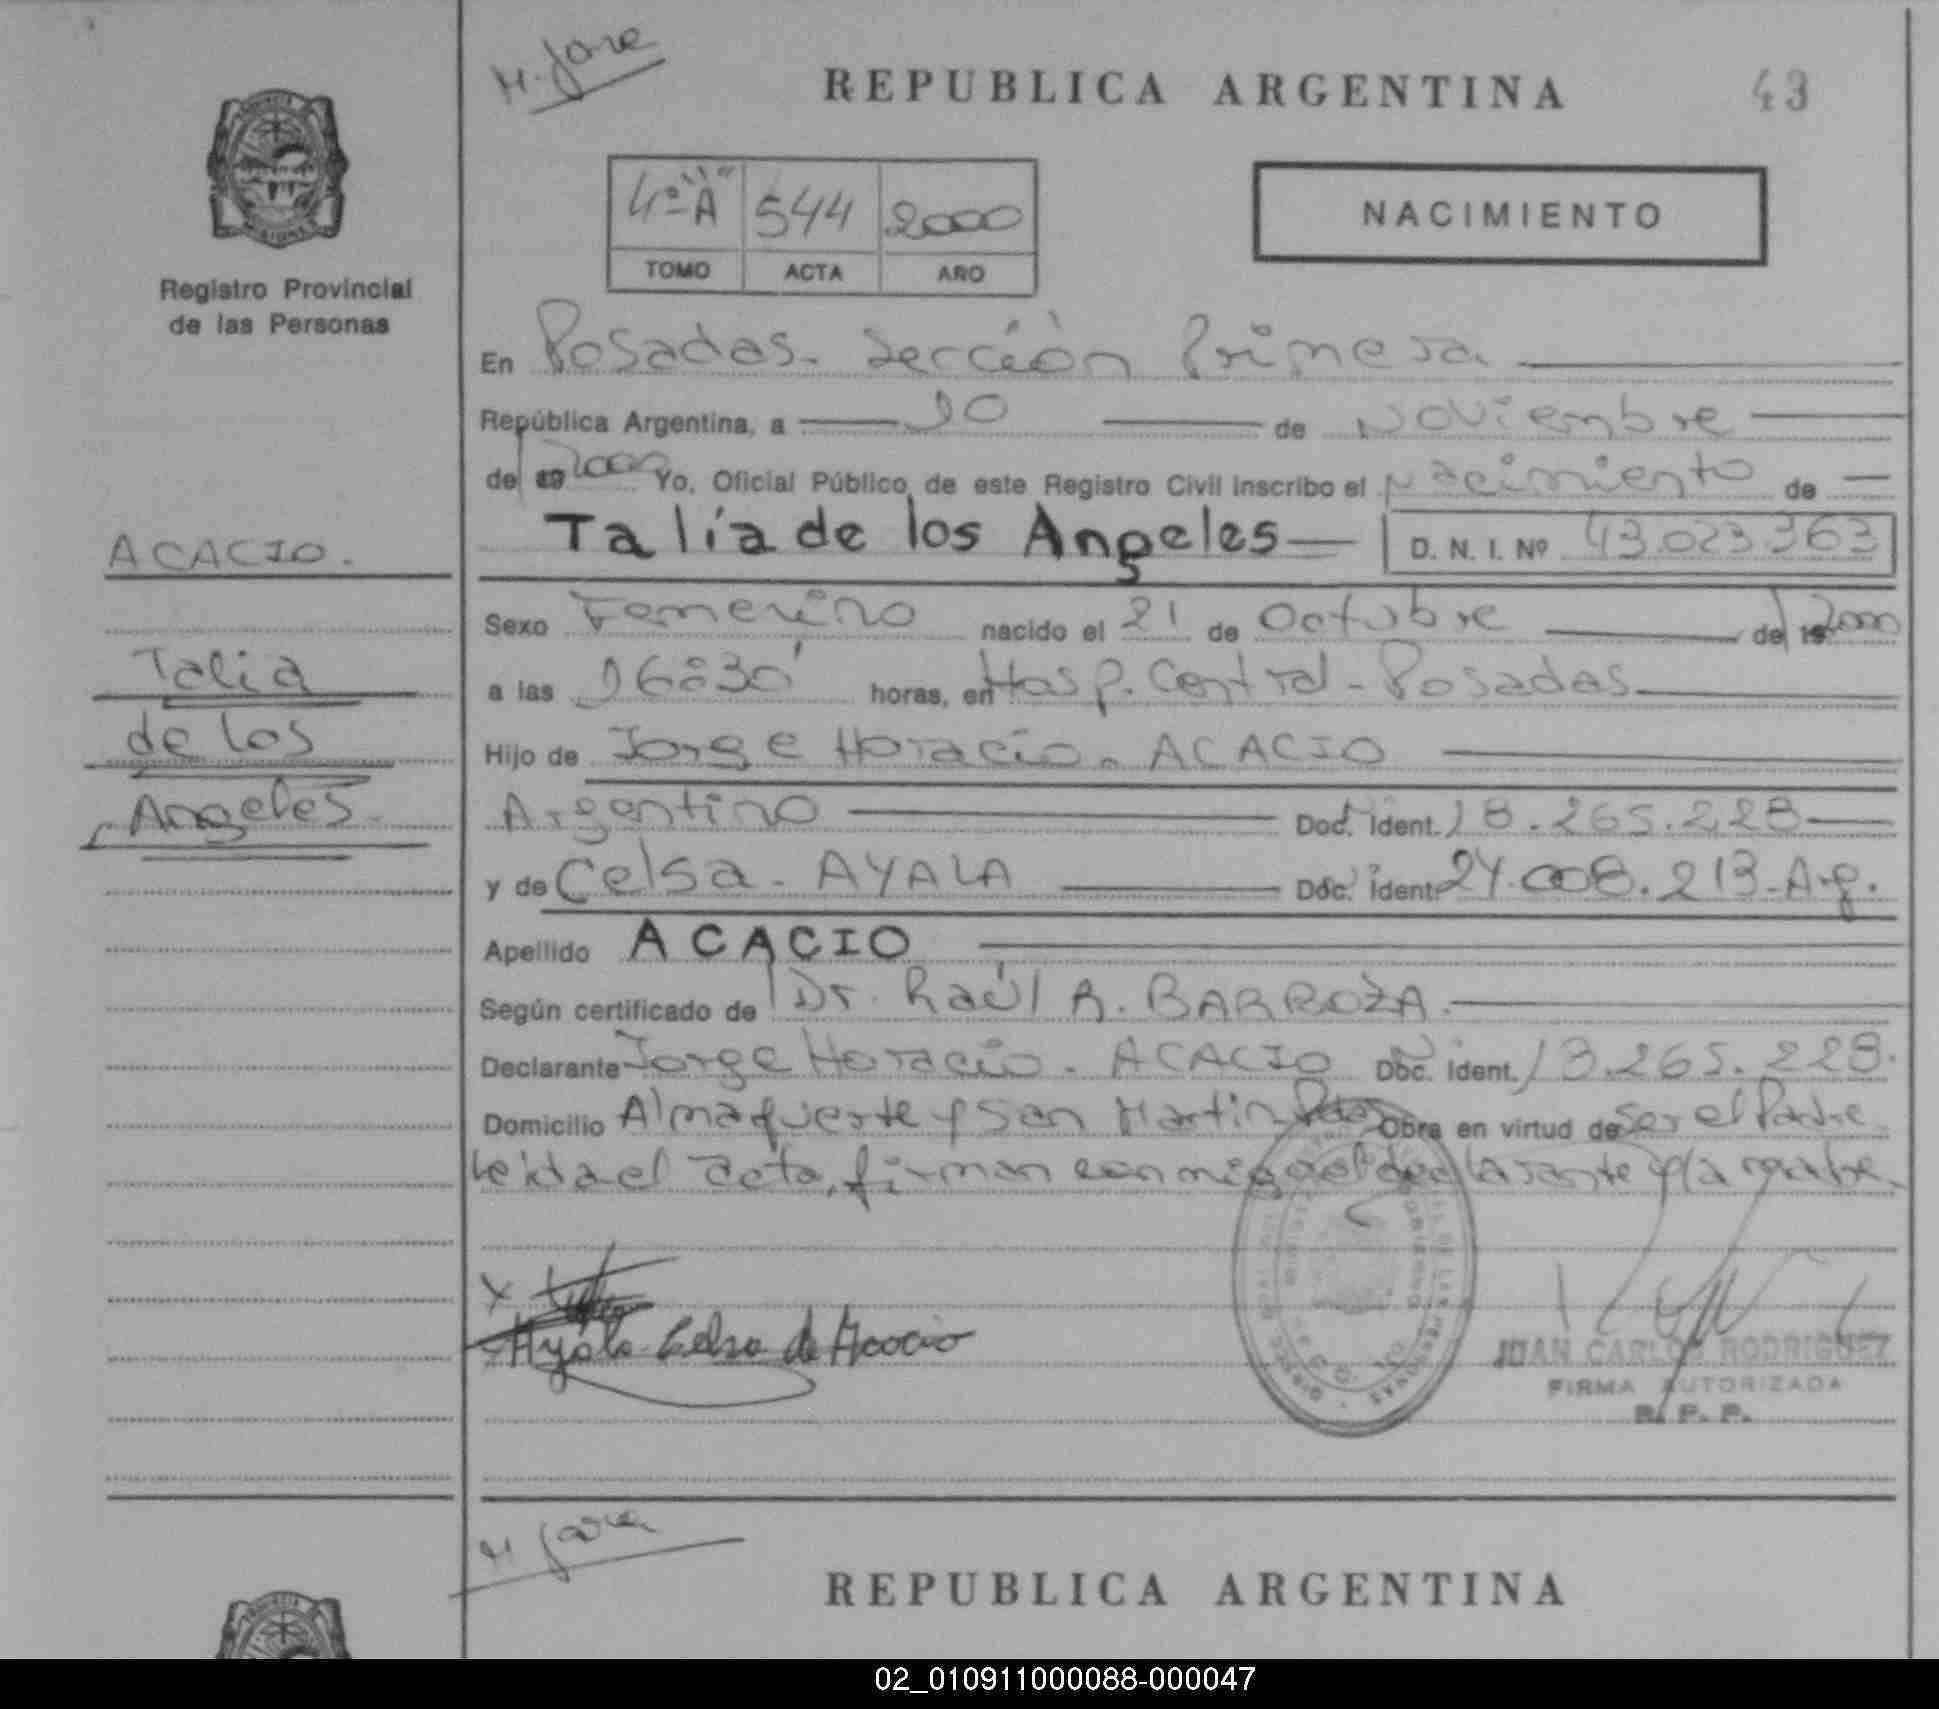 M. Jara
REPUBLICA ARGENTINA
43
4º "A" 544 2000
TOMO ACTA AÑO
NACIMIENTO
Registro Provincial
de las Personas
En Posadas - Sección Primera
República Argentina, a 10 de Noviembre
de 19 2000 Yo, Oficial Público de este Registro Civil inscribo el Nacimiento de
Talía de los Angeles D. N. I. Nº 43.023.363
ACACIO.
Sexo Femenino nacido el 21 de Octubre de 19 2000
Talia
a las 16:30' horas, en Hosp. Central - Posadas
de los
Hijo de Jorge Horacio - ACACIO
Angeles -
Argentino Doc. Ident. 18.265.228
y de Celsa - AYALA Doc. Ident. 24.008.213 - Arg.
Apellido ACACIO
Según certificado de Dr. Raúl R. BARROZA.
Declarante Jorge Horacio - ACACIO Doc. Ident. 18.265.228.
Domicilio Almafuerte y San Martin Pdas Obra en virtud de Ser el Padre
Leida el acta, firman conmigo el declarante y la madre.
X
Ayala Celsa de Acacio
JUAN CARLOS RODRIGUEZ
FIRMA AUTORIZADA
R. P. P.
M Jara
REPUBLICA ARGENTINA
02_010911000088-000047